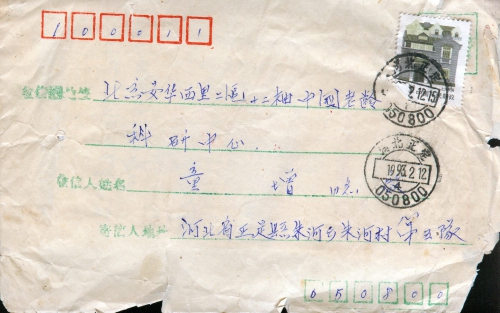 100011
收信人地址 北京安华西里二區十二楼中国老龄
科研中心
收信人姓名 童增
寄信人地址 河北省正定縣朱河乡朱河村第五隊
050800
河北正定
2.12.15
050800
河北正定
1993.2.12
050800